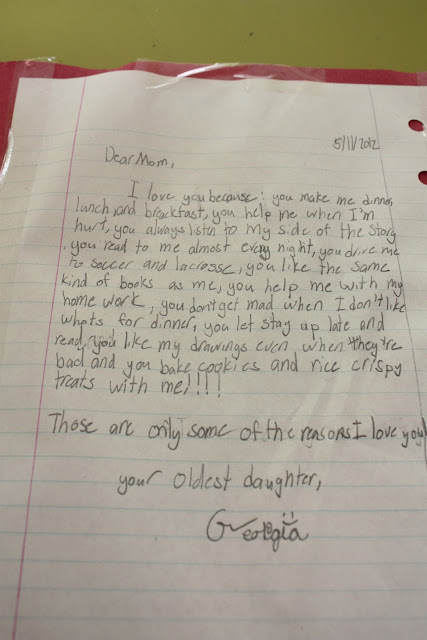 5/11/2012
Dear Mom,
I love you because: you make me dinner,
lunch, and breackfast, you help me when I'm
hurt, you always listin to my side of the story
, you read to me almost every night, you drive me
to soccer and lacrosse, you like the same
kind of books as me, you help me with my
home work, you dont get mad when I don't like
whats for dinner, you let stay up late and
read, you like my drawings even when they're
bad and you bake cookies and rice crispy
treats with me!!!!
Those are only some of the reasons I love you!
your oldest daughter,
Georgia